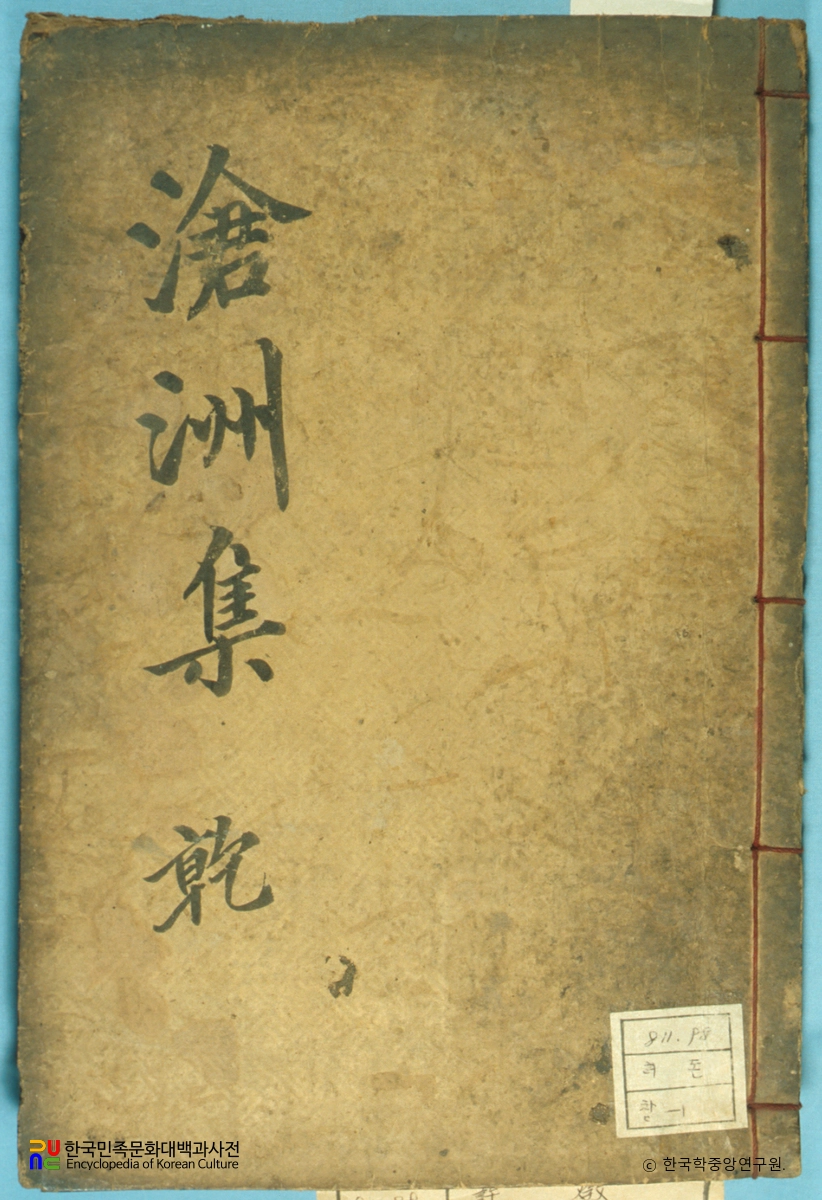 滄洲集 乾
811.98
허 돈
창 1
한국민족문화대백과사전
Encyclopedia of Korean Culture
ⓒ 한국학중앙연구원.